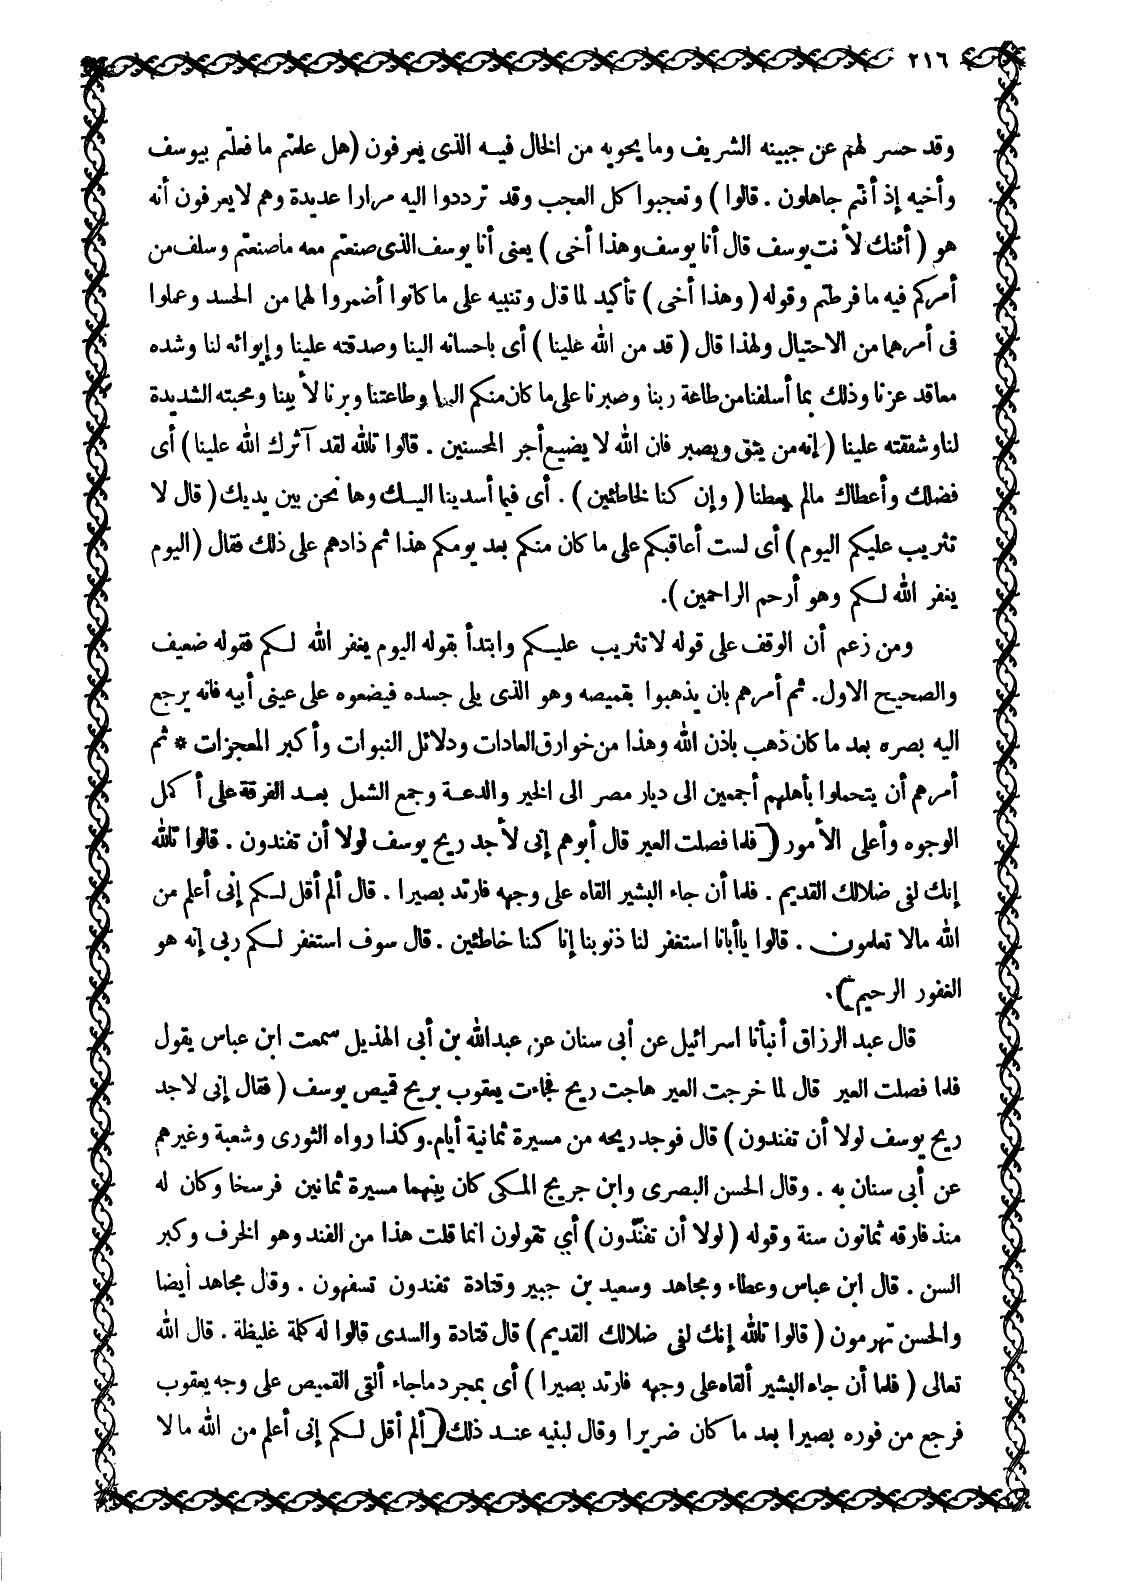 ٢١٦
وقد حسر لهم عن جبينه الشريف وما يحويه من الخال فيه الذى يعرفون (هل علمتم ما فعلتم بيوسف
وأخيه إذ أنتم جاهلون . قالوا ) وتعجبوا كل العجب وقد ترددوا اليه مرارا عديدة وهم لا يعرفون أنه
هو ( أئنك لأنت يوسف قال أنا يوسف وهذا أخى ) يعنى أنا يوسف الذى صنعتم معه ما صنعتم وسلف من
أمركم فيه ما فرطتم وقوله ( وهذا أخى ) تأكيد لما قال وتنبيه على ما كانوا أضمروا لهما من الحسد وعملوا
فى أمرهما من الاحتيال ولهذا قال ( قد من الله علينا ) أى باحسانه الينا وصدقته علينا وإيوائه لنا وشده
معاقد عزنا وذلك بما أسلفنا من طاعة ربنا وصبرنا على ما كان منكم الينا وطاعتنا وبرنا لأبينا ومحبته الشديدة
لنا وشفقته علينا ( إنه من يتق ويصبر فان الله لا يضيع أجر المحسنين . قالوا تالله لقد آثرك الله علينا ) أى
فضلك وأعطاك مالم يعطنا ( وإن كنا لخاطئين ) . أى فيما أسدينا اليك وها نحن بين يديك ( قال لا
تثريب عليكم اليوم ) أى لست أعاقبكم على ما كان منكم بعد يومكم هذا ثم ذادهم على ذلك فقال (اليوم
يغفر الله لكم وهو أرحم الراحمين ).
ومن زعم أن الوقف على قوله لا تثريب عليكم وابتدأ بقوله اليوم يغفر الله لكم فقوله ضعيف
والصحيح الاول. ثم أمرهم بان يذهبوا بقميصه وهو الذى يلى جسده فيضعوه على عينى أبيه فانه يرجع
اليه بصره بعد ما كان ذهب باذن الله وهذا من خوارق العادات ودلائل النبوات وأكبر المعجزات * ثم
أمرهم أن يتحملوا بأهلهم أجمعين الى ديار مصر الى الخير والدعة وجمع الشمل بعد الفرقة على أكمل
الوجوه وأعلى الأمور ( فلما فصلت العير قال أبوهم إنى لأجد ريح يوسف لولا أن تفندون . قالوا تالله
إنك لفى ضلالك القديم . فلما أن جاء البشير القاه على وجهه فارتد بصيرا . قال ألم أقل لكم إنى أعلم من
الله مالا تعلمون . قالوا ياأبانا استغفر لنا ذنوبنا إنا كنا خاطئين . قال سوف استغفر لكم ربى إنه هو
الغفور الرحيم ).
قال عبد الرزاق أنبأنا اسرائيل عن أبى سنان عن عبدالله بن أبى الهذيل سمعت ابن عباس يقول
فلما فصلت العير قال لما خرجت العير هاجت ريح فجاءت يعقوب بريح قميص يوسف ( فقال إنى لاجد
ريح يوسف لولا أن تفندون ) قال فوجد ريحه من مسيرة ثمانية أيام. وكذا رواه الثورى وشعبة وغيرهم
عن أبى سنان به . وقال الحسن البصرى وابن جريج المكى كان بينهما مسيرة ثمانين فرسخا وكان له
منذ فارقه ثمانون سنة وقوله ( لولا أن تفنّدون ) أي تقولون انما قلت هذا من الفند وهو الخرف وكبر
السن . قال ابن عباس وعطاء ومجاهد وسعيد بن جبير وقتادة تفندون تسفهون . وقال مجاهد أيضا
والحسن تهرمون ( قالوا تالله إنك لفى ضلالك القديم ) قال قتادة والسدى قالوا له كلمة غليظة . قال الله
تعالى ( فلما أن جاء البشير ألقاه على وجهه فارتد بصيرا ) أى بمجرد ما جاء ألقى القميص على وجه يعقوب
فرجع من فوره بصيرا بعد ما كان ضريرا وقال لبنيه عند ذلك ( ألم أقل لكم إنى أعلم من الله مالا